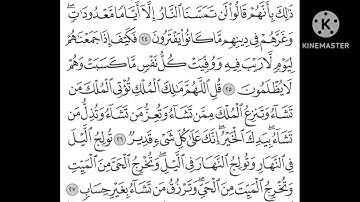 ذَٰلِكَ بِأَنَّهُمْ قَالُوا۟ لَن تَمَسَّنَا ٱلنَّارُ إِلَّآ أَيَّامًا مَّعْدُودَٰتٍ ۖ
وَغَرَّهُمْ فِى دِينِهِم مَّا كَانُوا۟ يَفْتَرُونَ ٢٤ فَكَيْفَ إِذَا جَمَعْنَٰهُمْ
لِيَوْمٍ لَّا رَيْبَ فِيهِ وَوُفِّيَتْ كُلُّ نَفْسٍ مَّا كَسَبَتْ وَهُمْ
لَا يُظْلَمُونَ ٢٥ قُلِ ٱللَّهُمَّ مَٰلِكَ ٱلْمُلْكِ تُؤْتِى ٱلْمُلْكَ مَن
تَشَآءُ وَتَنزِعُ ٱلْمُلْكَ مِمَّن تَشَآءُ وَتُعِزُّ مَن تَشَآءُ وَتُذِلُّ مَن
تَشَآءُ ۖ بِيَدِكَ ٱلْخَيْرُ ۖ إِنَّكَ عَلَىٰ كُلِّ شَىْءٍ قَدِيرٌ ٢٦ تُولِجُ ٱلَّيْلَ
فِى ٱلنَّهَارِ وَتُولِجُ ٱلنَّهَارَ فِى ٱلَّيْلِ ۖ وَتُخْرِجُ ٱلْحَىَّ مِنَ ٱلْمَيِّتِ
وَتُخْرِجُ ٱلْمَيِّتَ مِنَ ٱلْحَىِّ ۖ وَتَرْزُقُ مَن تَشَآءُ بِغَيْرِ حِسَابٍ ٢٧
KINEMASTER